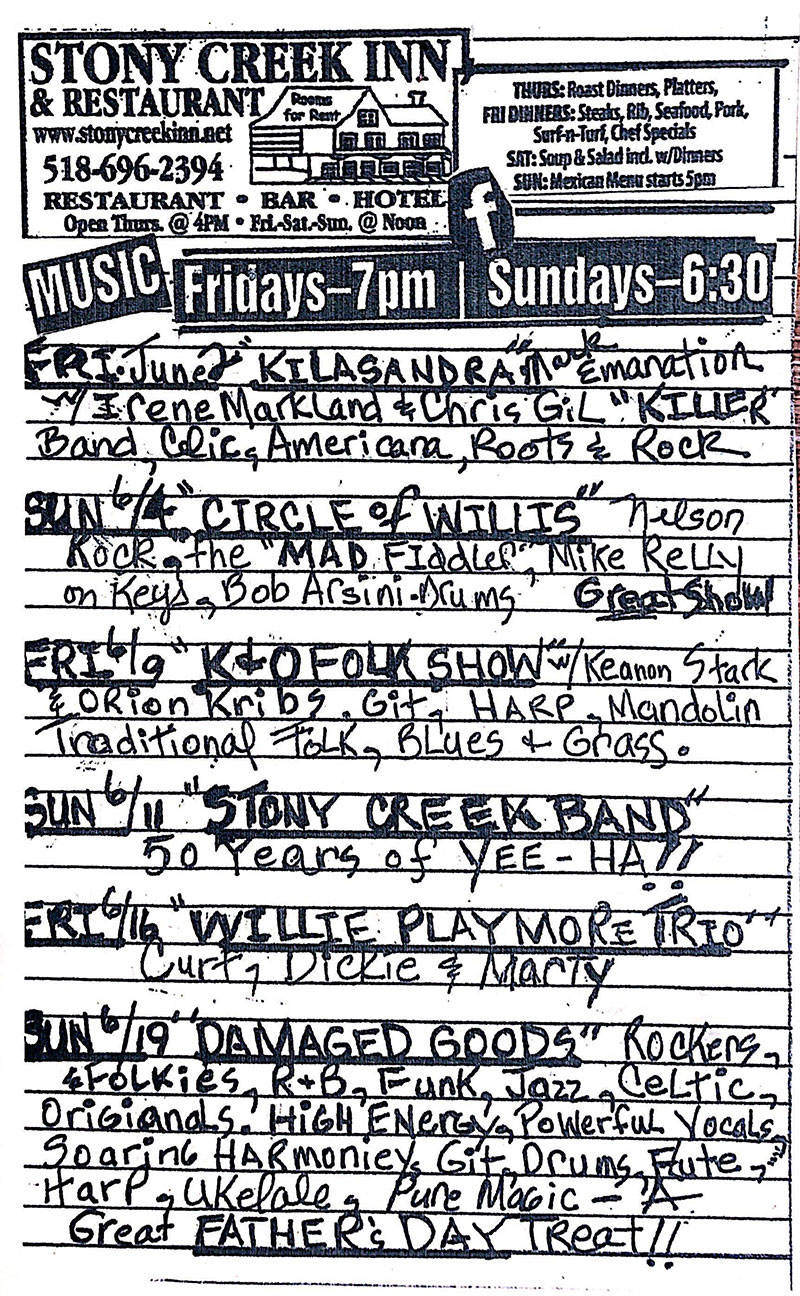 STONY CREEK INN
& RESTAURANT
Rooms
for Rent
www.stonycreekinn.net
518-696-2394
RESTAURANT • BAR • HOTEL
Open Thurs. @ 4PM • Fri.-Sat.-Sun. @ Noon
THURS: Roast Dinners, Platters,
FRI DINNERS: Steaks, Rib, Seafood, Pork,
Surf-n-Turf, Chef Specials
SAT: Soup & Salad incl. w/Dinners
SUN: Mexican Menu starts 5pm
f
MUSIC Fridays–7pm | Sundays–6:30
FRI. June 2 "KILASANDRA" Mark Emanation
w/ Irene Markland & Chris GiL "KILLER"
Band, Celic, Americana, Roots & Rock
SUN 6/4 "CIRCLE of WILLIS" Nelson
Rock, the "MAD FIddler", Mike Relly
on Keys, Bob Arsini-Drums Great Show!
FRI 6/9 "K+O FOLK SHOW" w/Keanon Stark
& ORion Kribs. Git, HARP, Mandolin
Traditional FoLK, BLues + Grass.
SUN 6/11 "STONY CREEK BAND"
50 Years of YEE-HA!!
FRI 6/16 "WILLIE PLAYMORE TRIO"
Curt, Dickie & Marty
SUN 6/19 "DAMAGED GOODS" Rockers,
& FOLKies, R+B, Funk, Jazz, CeLtic,
Origianals. HIGH ENergy, Powerful Vocals,
Soaring HARmoniey, Git, Drums, Flute,
Harp, UKelale, Pure Magic - A
Great FATHER's DAY Treat!!